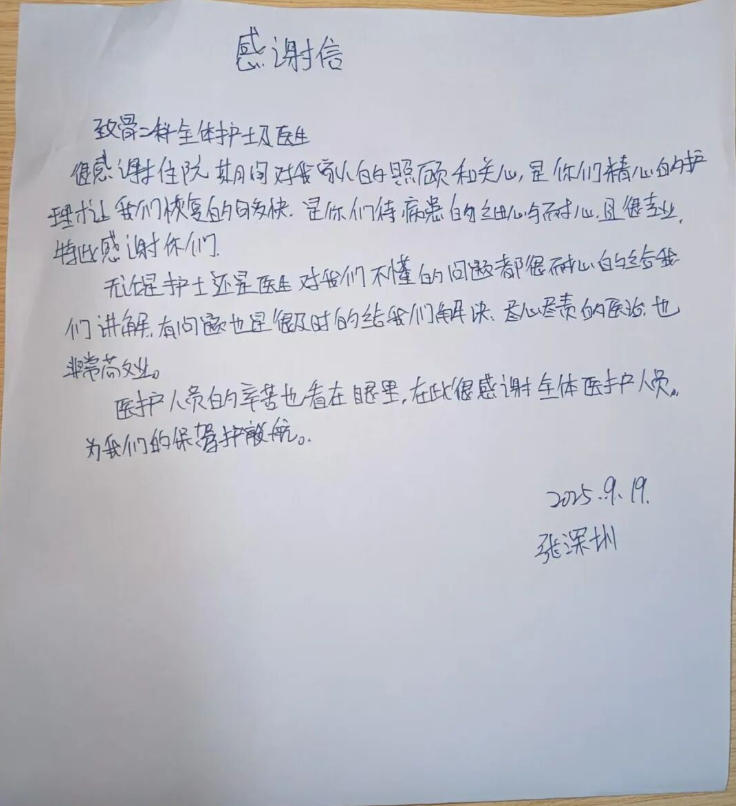 感谢信
致骨二科全体护士及医生
很感谢住院期间对我家人的照顾和关心,是你们精心的护
理才让我们恢复的自多快.是你们待病患的细心与耐心.且很专业,
特此感谢你们.
无论是护士还是医生对我们不懂的问题都很耐心的给我
们讲解.有问题也是很及时的给我们解决.尽心尽责的医治.也
非常敬业。
医护人员的辛苦也看在眼里,在此很感谢全体医护人员。
为我们的保驾护航。
2025.9.19.
张深圳